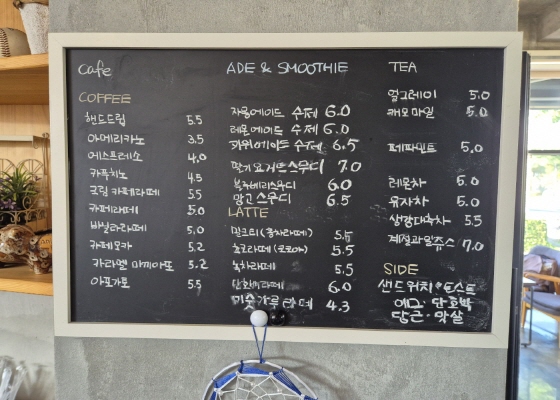 Cafe
COFFEE
핸드드립 5.5
아메리카노 3.5
에스프레소 4.0
카푸치노 4.5
크림 카페라떼 5.5
카페라떼 5.0
바닐라라떼 5.0
카페모카 5.2
카라멜 마끼아또 5.2
아포가토 5.5
ADE & SMOOTHIE
자몽에이드 수제 6.0
레몬에이드 수제 6.0
에이드 수제 6.5
딸기요거트스무디 7.0
블루베리스무디 6.0
망고스무디 6.5
LATTE
밀크티(홍차라떼) 5.5
초코라떼(코코아) 5.5
녹차라떼 5.5
단호박라떼 6.0
미숫가루라떼 4.3
TEA
얼그레이 5.0
캐모마일 5.0
페퍼민트 5.0
레몬차 5.0
유자차 5.0
생강대추차 5.5
계절과일쥬스 7.0
SIDE
샌드위치 토스트
에그 단호박
당근 맛살